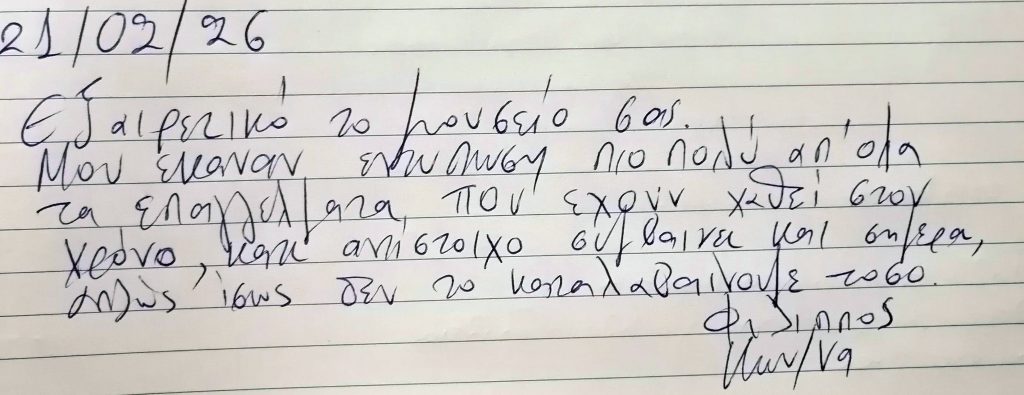 21/02/26
Εξαιρετικό το μουσείο σας.
Μου εκαναν εντυπωση πιο πολύ απ'ολα
τα επαγγελματα, που εχουν χαθεί στον
χρόνο, κατι αντίστοιχο συμβαινει και σημερα,
απλώς ίσως δεν το καταλαβαινουμε τοσο.
Φιλιππος
Κων/να